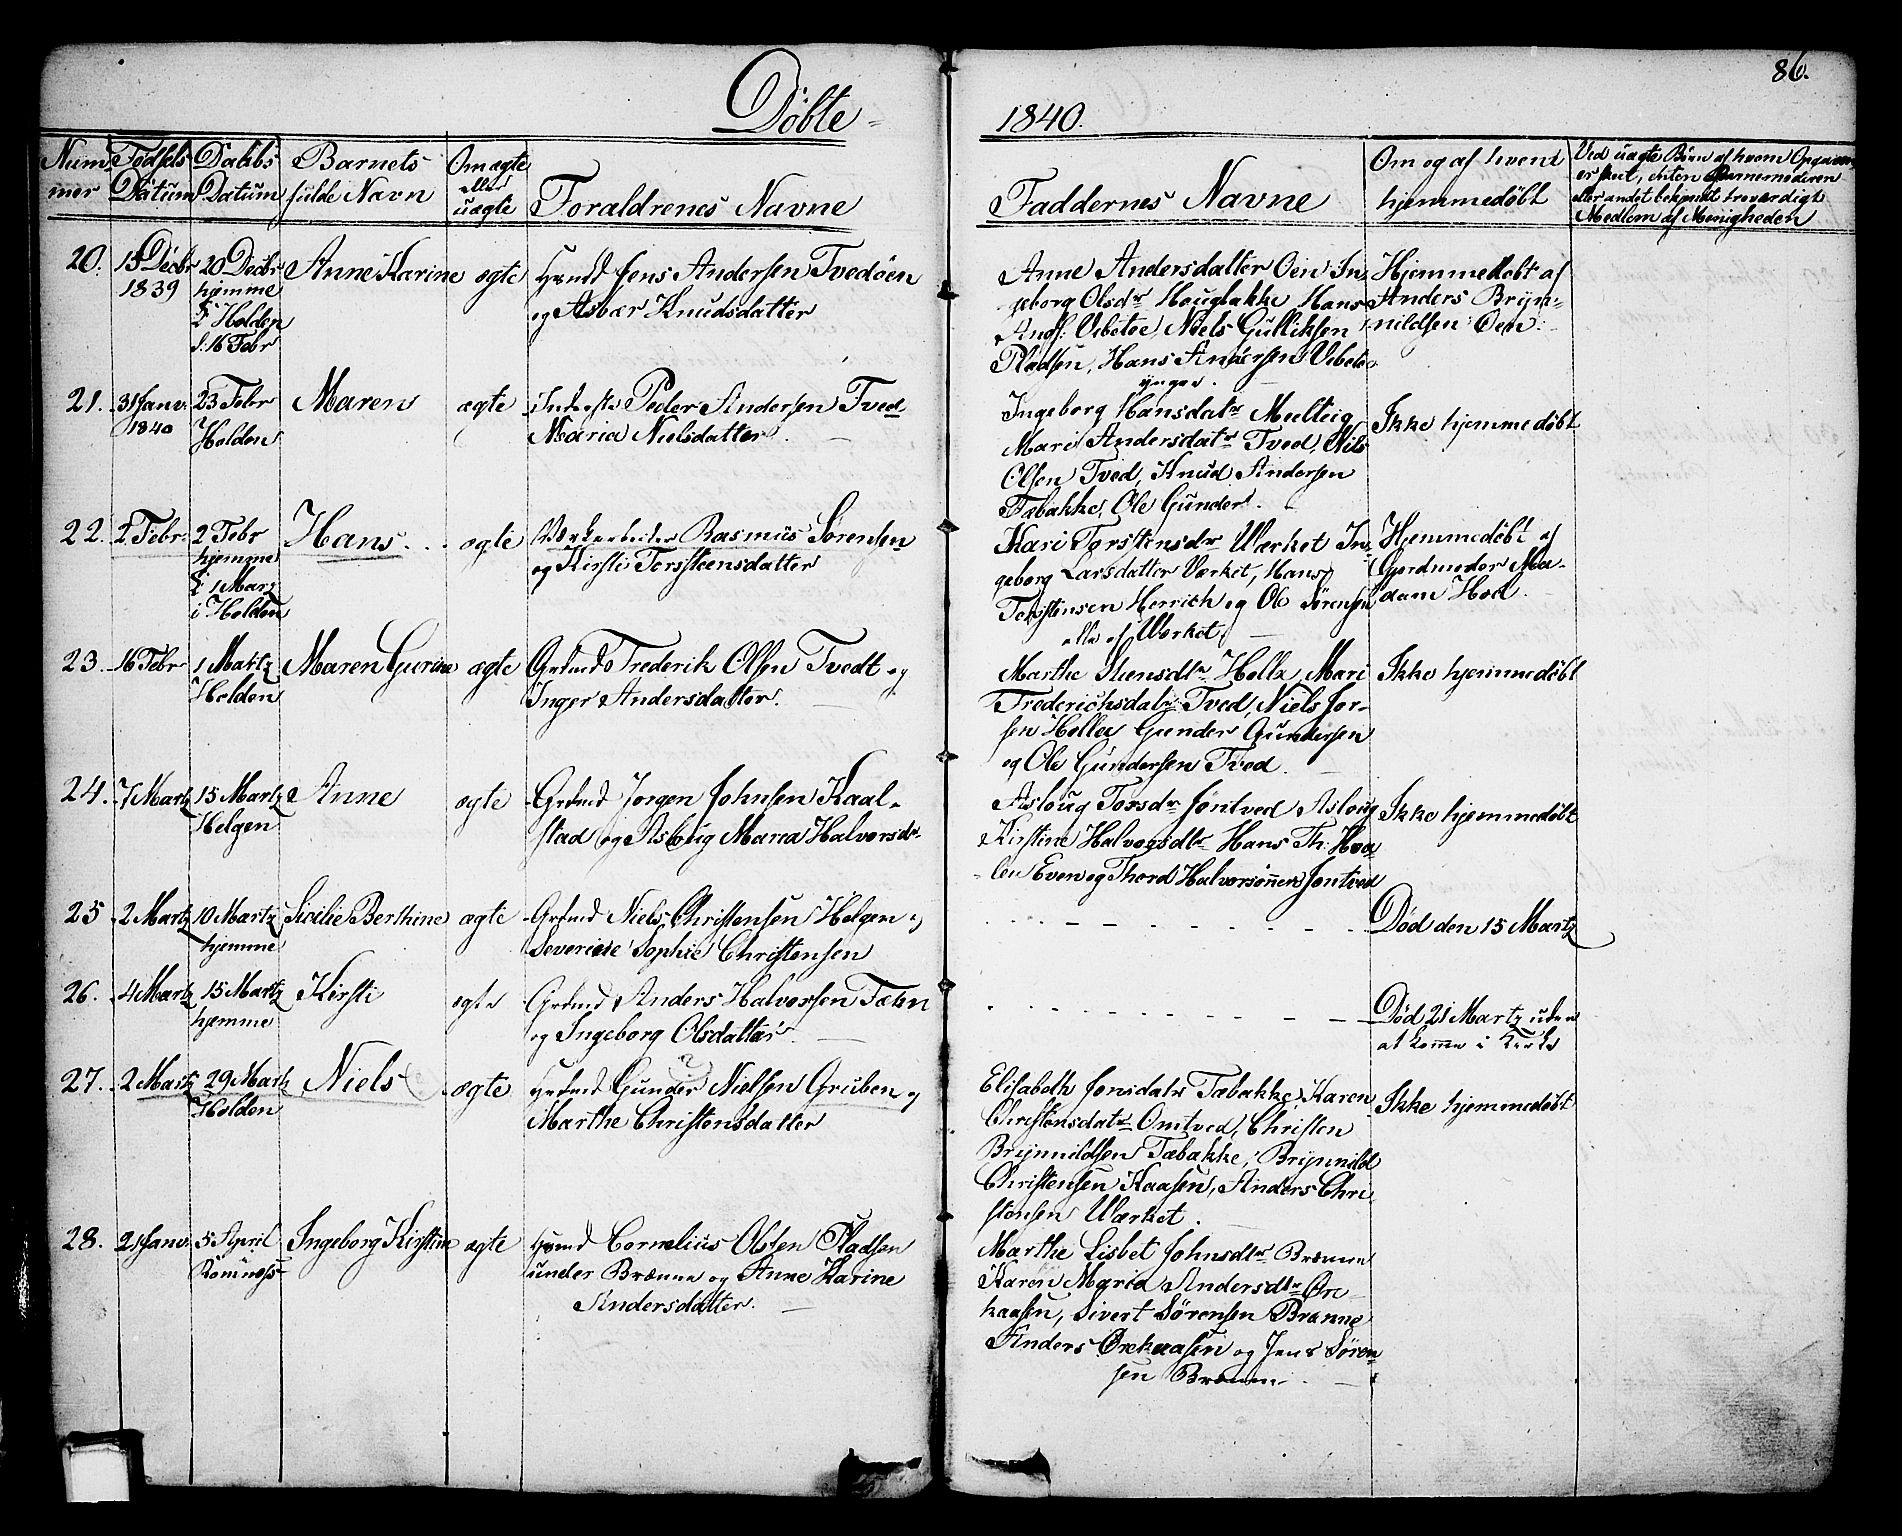 Döbte
1840.
86.
Num-
mer
Födsels
Datum
Daabs
Datum
Barnets
fulde Navn
Om ægte
eller
uægte
Foraldrenes Navne
Faddernes Navne
Om og af hvem
hjemmedøbt
Ved uægte Børn af hvem Opgaven
er skeet, enten Barnemoderen
eller andet bekjendt troværdigt
Medlem af Menigheden
20.
15 Decbr
1839
20 Decbr
hjemme
i Holden
d: 16 Febr
Anne Karine
ægte
Huusmd Jens Andersen Tvedöen
og Asbær Knudsdatter
Anne Andersdatter Oen In-
geborg Olsdr Haugbakke Hans
Ands: Vibetoe, Niels Gulliksen
Pladsen, Hans Andersen Vibeto
yngre.
Hjemmedøbt af
Anders Bryn-
nildsen Oen
21.
31 Janv.
1840
23 Febr
Holden
Maren
ægte
Inderste Peder Andersen Tved
Maria Nielsdatter.
Ingeborg Hansdatr Melteig
Mari Andersdatr Tved, Nils
Olsen Tved, Knud Andersen
Tæbakke, Ole Gunders.
Ikke hjemmedøbt
22.
2 Febr.
2 Febr
hjemme
i 1 Marz
i Holden
Hans
ægte
Værkarbeider Rasmus Sørensen
og Kirsti Torsteensdatter
Kari Torstensdr Værket In-
geborg Larsdatter Værket, Hans
Torstinsen Herrich og Ole Sørensen
alle af Værket
Hjemmedøbt af
Gjordmoder Ma-
dam Hoel.
23.
16 Febr
1 Martz
Holden
Maren Gurine
ægte
Grdmd Frederik Olsen Tvedt og
Inger Andersdatter.
Marthe Steensdtr Holla, Mari
Frederichsdatr Tved, Niels Jor-
sen Holla Gunder Gundersen
og Ole Gundersen Tved.
Ikke hjemmedøbt
24.
7 Martz
15 Martz
Helgen
Anne
ægte
Grdmd Jorgen Johnsen Kaal-
stad og Asloug Marea Halvorsdr
Asloug Torsdr Jontved Asloug
Kirstine Halvorsdtr Hans Th: Hva-
len Even og Thord Halvorsønner Jontved
Ikke hjemmedøbt
25
2 Martz
10 Martz
hjemme
Sicilie Berthine
ægte
Grdmd Niels Christensen Helgen og
Severine Sophie Christensen
Død den 15 Martz
26.
4 Martz
15 Martz
hjemme
Kirsti
ægte
Grdmd Anders Halvorsen Tæhn
og Ingeborg Olsdatter.
Død 21 Martz uden
at komme i Kirke
27.
2 Martz
29 Martz
Holden
Niels
ægte
Huusmd Gunder Nielsen Gruben og
Marthe Christensdatter
Elisabeth Jonsdatr Tæbakke, Karen
Christensdatr Omtved, Christen
Brynnildsen Tæbakke, Brynnild
Christensen Kaasen, Anders Chri-
stensen Værket.
Ikke hjemmedøbt
28.
21 Janv.
5 April
Romnæs
Ingeborg Kirstine
ægte
Huusmd Cornelius Olsen Pladsen
under Brænne og Anne Karine
Andersdatter.
Marthe Lisbet Johnsdtr Brænne
Karen Maria Andersdtr Øre-
kaasen, Sivert Sørensen Brænne
Anders Ørekaasen og Jens Søren-
sen Brænne.